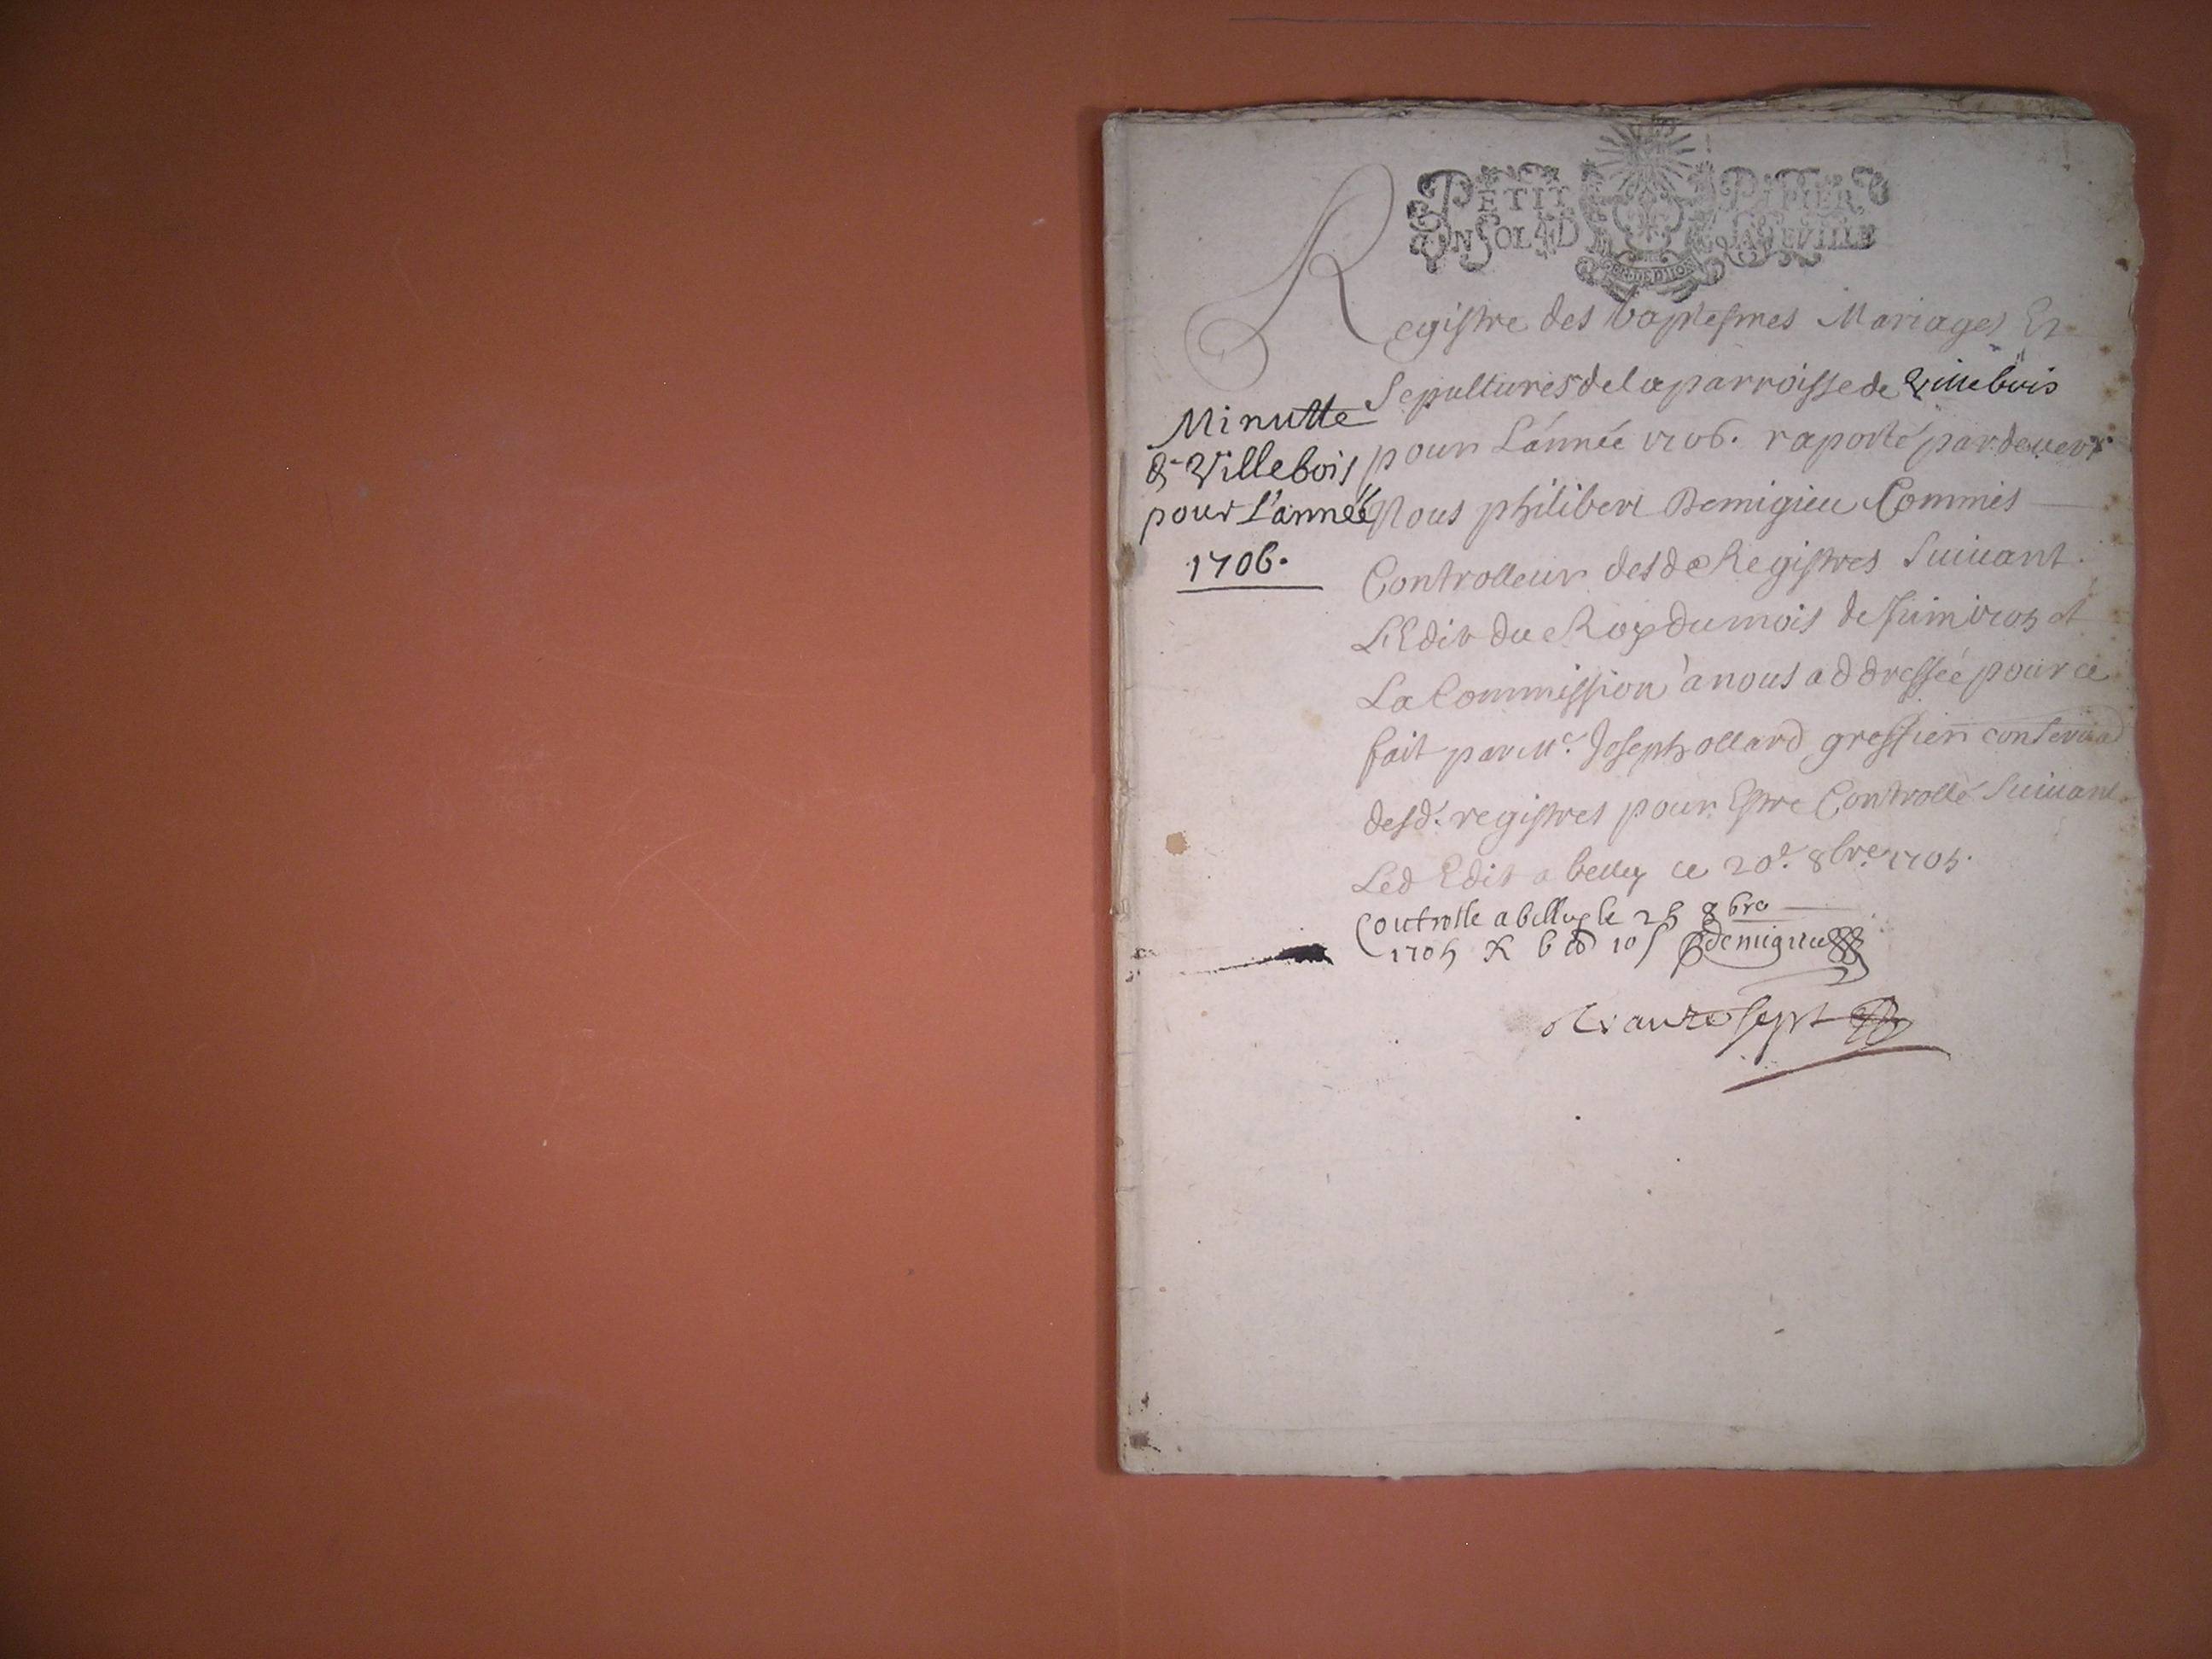 PETIT PAPIER
UN SOL 4 D LA FEUILLE
GEN DE DIION
Registre des baptesmes Mariages Et
Sepultures de la parroisse de Villebois
pour L'année 1706. raporté pardevers
Nous philibert Demigieu Commis
Controlleur desd Registres Suivant
L'Edit du Roy du mois de Juin 1705 et
La Commission a nous addressée pour ce
fait par Me. Joseph ollard greffier
desd. registres pour Estre Controllé Suivant
Led Edit a belley ce 20e. 8bre 1705.
Controlle a belley le 25 8bre
1705 R 6 10 s Demigieu
Minutte
de Villebois
pour L'année
1706.